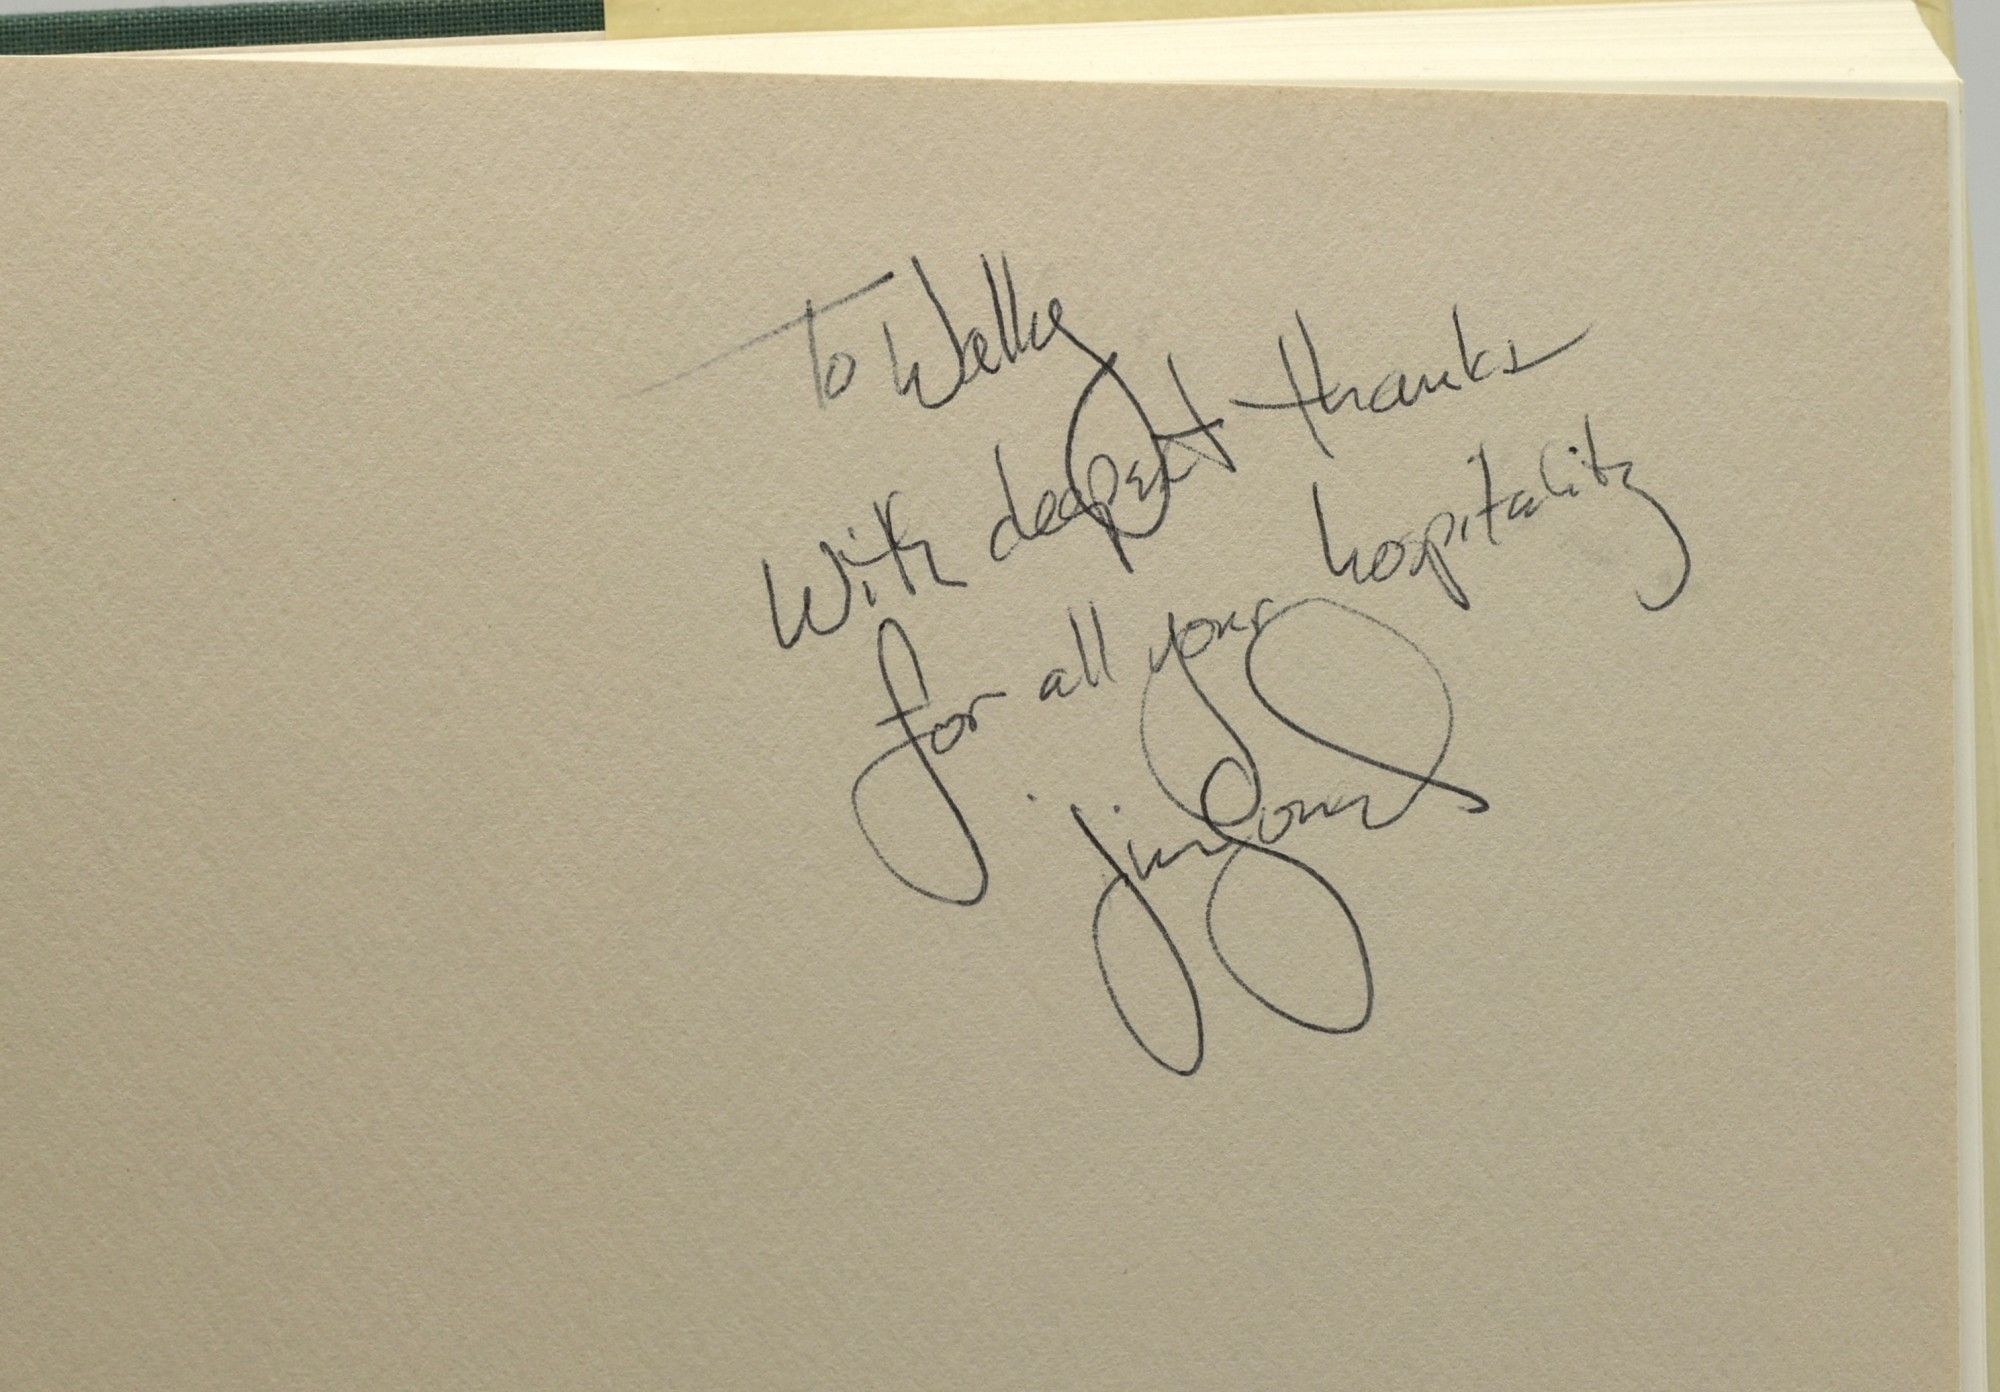 To Wally
With deepest thanks
for all your hospitality
Jim Jones